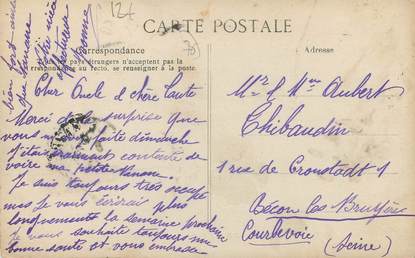 124
CARTE POSTALE
Correspondance
Tous les pays étrangers n'acceptent pas la
correspondance au recto, se renseigner à la poste.
Adresse
Cher Oncle & chère Tante
Merci de la surprise que
vous m' faite dimanche
J'étais vraiment contente de
voire ma petite
Je suis toujours très occupé
mes je vous écrirai plus
longuements la semaine prochaine
Je vous souhaite toujours une
bonne santé et vous embrasse
bien fort
que
Votre nièce
Mr & Mme Aubert
Thibaudin
1 rue de Cronstadt 1
Bécon les Bruyère
Courbevoie
(Seine)